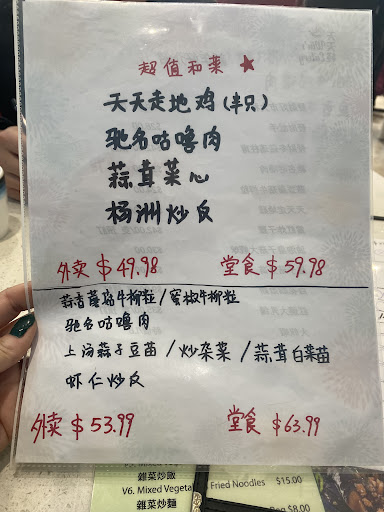 超值和菜 ★
天天走地鸡(半只)
驰名咕噜肉
蒜茸菜心
杨洲炒反
外卖 $49.98 堂食 $59.98
蒜香蘑菇牛柳粒/蜜椒牛柳粒
驰名咕噜肉
上汤蒜子豆苗/炒杂菜/蒜茸白菜苗
虾仁炒反
外卖 $53.99 堂食 $63.99
雜菜炒飯
V6. Mixed Vegeta
雜菜炒麵
Fried Noodles $15.00
$8.00